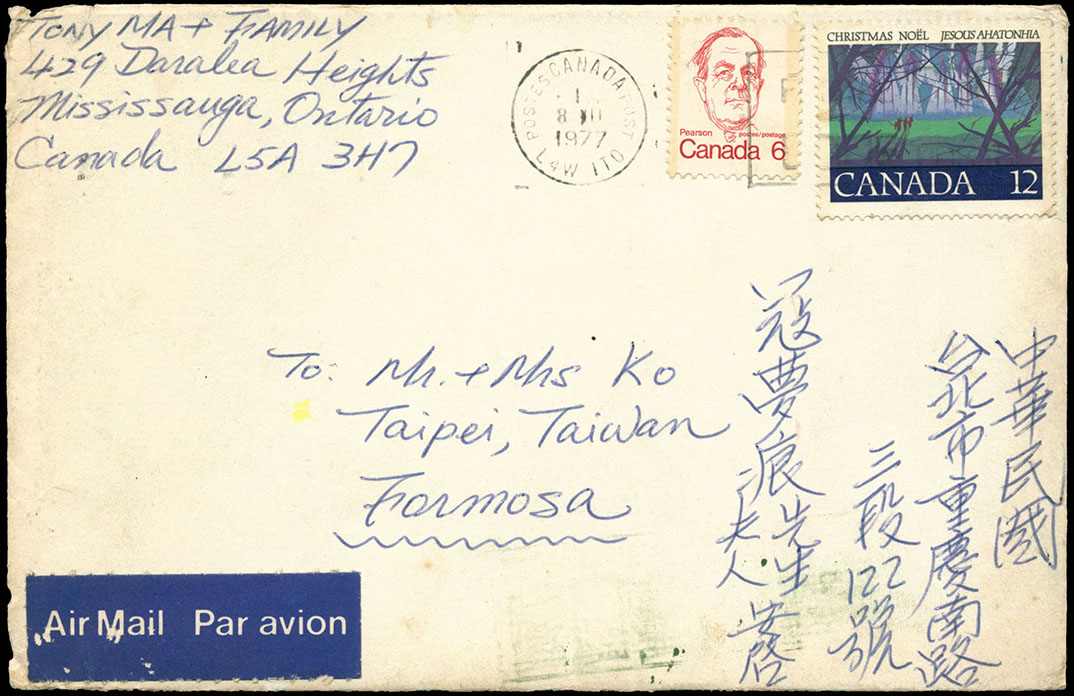 TONY MA + FAMILY
429 Daralea Heights
Mississauga, Ontario
Canada L5A 3H7
POSTES CANADA POST
8 XII
1977
L4W 1T0
Pearson
postes/postage
Canada 6
CHRISTMAS NOËL JESOUS AHATONHIA
CANADA 12
To: Mr. + Mrs Ko
Taipei, Taiwan
Formosa
中華民國
台北市重慶南路
三段122號
寇夢痕先生
夫人 安啓
Air Mail Par avion